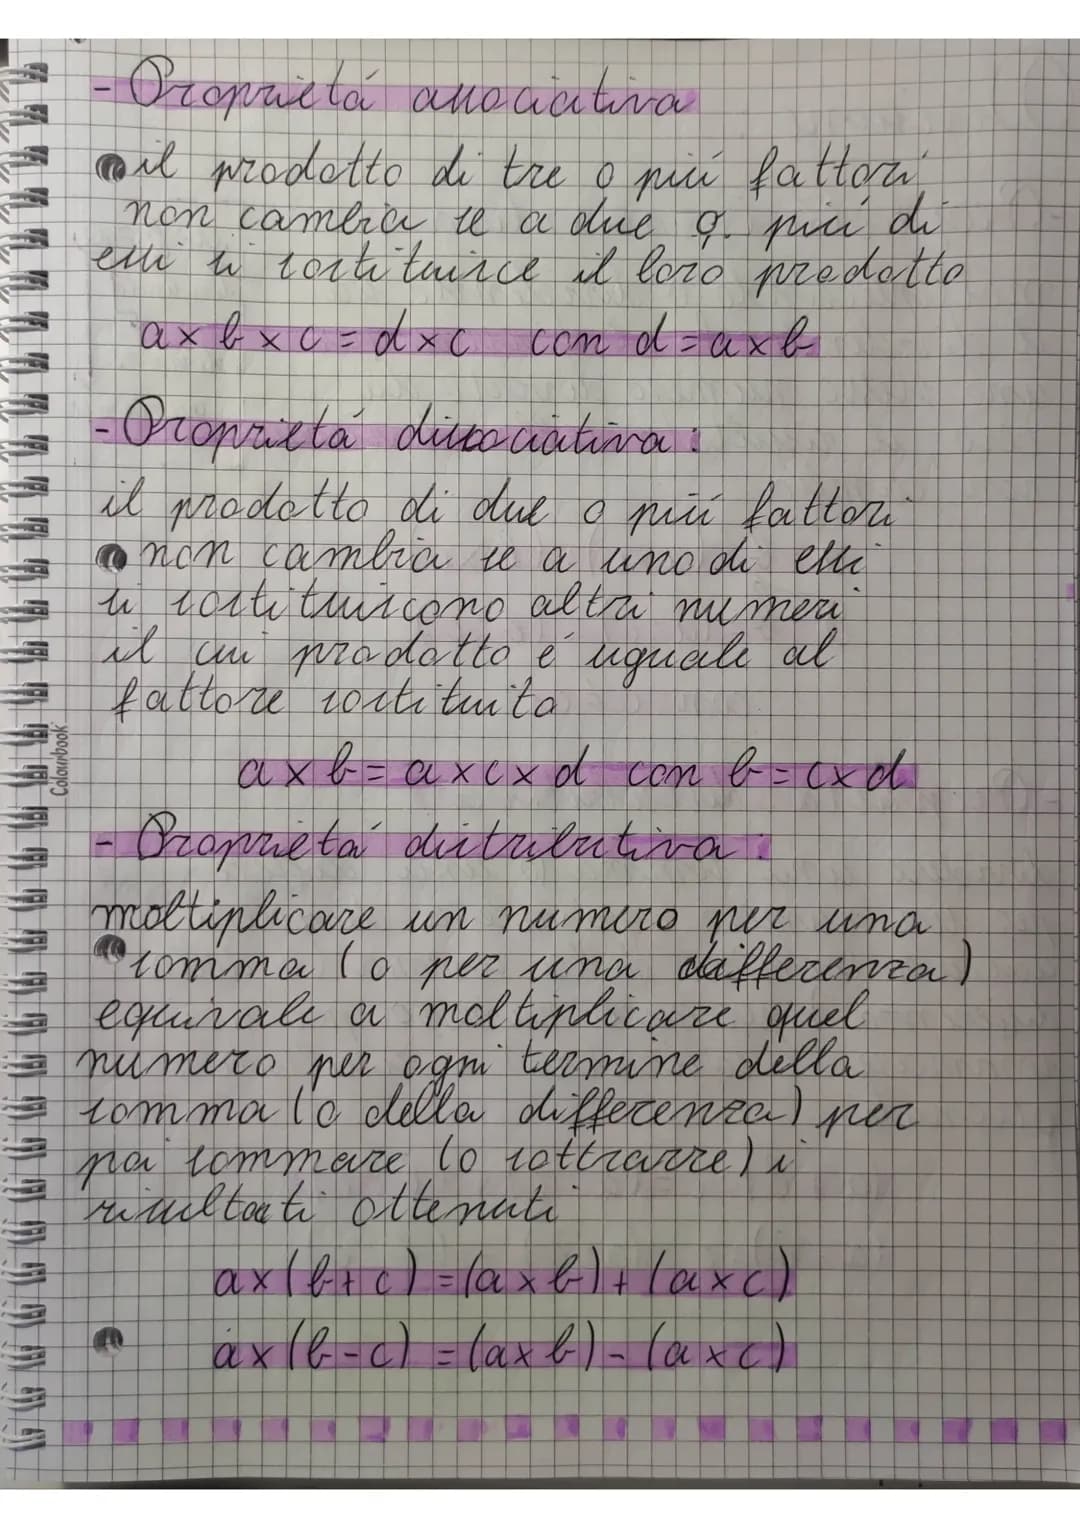 - Proprietá associativa
il prodotto di tre o piú fattori
non cambia se a due o più di
essi si sostituisce il loro prodotto
a x b x c = d x c con d = a x b
- Proprietá dissociativa:
il prodotto di due o piú fattori
non cambia se a uno di essi
si sostituiscono altri numeri
il cui prodotto é uguale al
fattore sostituito
a x b = a x c x d con b = c x d
- Proprietá distributiva:
moltiplicare un numero per una
somma (o per una differenza)
equivale a moltiplicare quel
numero per ogni termine della
somma (o della differenza) per
poi sommare (o sottrarre) i
risultati ottenuti
a x (b + c) = (a x b) + (a x c)
a x (b - c) = (a x b) - (a x c)
Colourbook